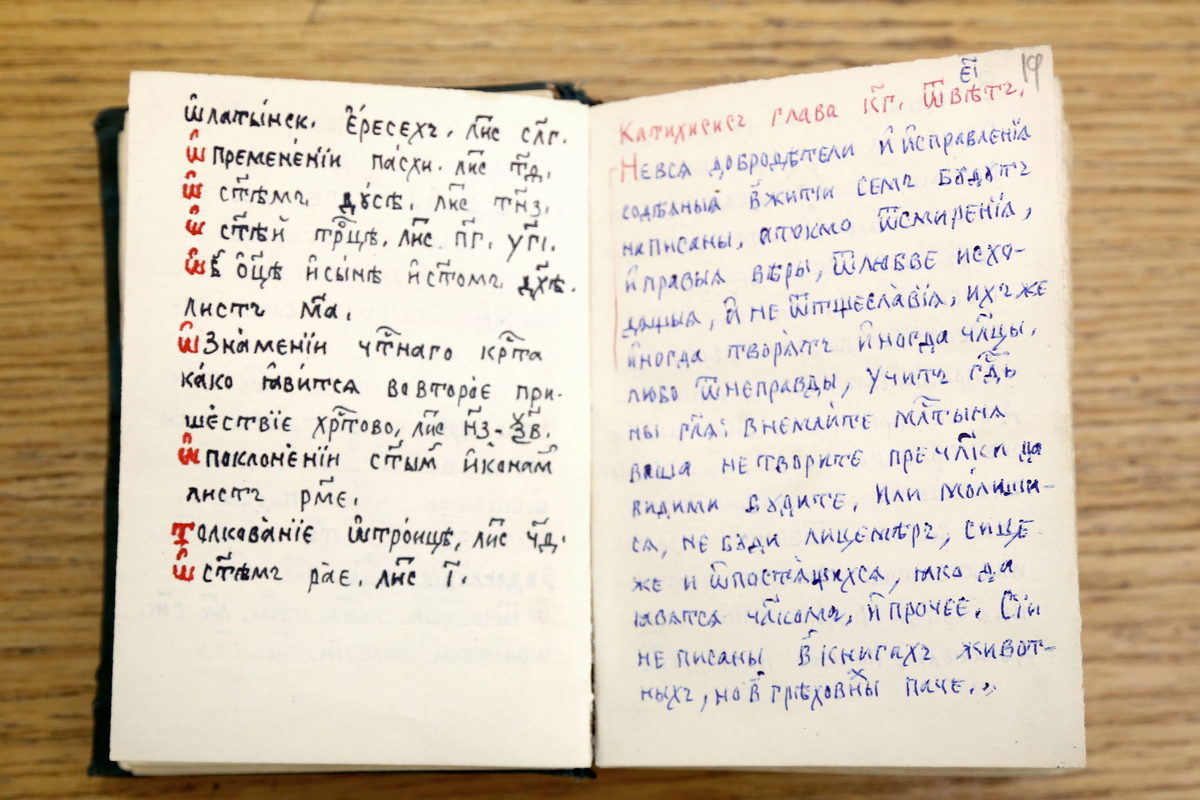 ѽлаты́нск. є҆́ресехъ, ли҃с сл҃г.
ѽ премене́нїи па́схи. ли҃с т҃д.
ѽ ст҃ѣмъ дꙋ́сѣ, ли҃с тн҃з,
ѽ ст҃ѣй тро҃цѣ, ли҃с п҃г. ѵ҃гі.
ѽ в҃ ѻ҆ц҃ѣ и҆сы́нѣ и҆ст҃омъ дх҃ѣ.
листъ м҃а.
ѽ Зна́менїи чт҃наго кр҃та
ка́ко ꙗ҆ви́тся вовторо́е при-
ше́ствїе хрт҃ово, ли҃с н҃з - ѯ҃в.
ѽ поклоне́нїи ст҃ым и҆конам
листъ рм҃є.
Толкова́нїе ѽтро́ицѣ, ли҃с ч҃д.
ѽ ст҃ѣмъ ра́е, ли҃с і҃.
є҃і 19
Катихисисъ глава к҃г. ѿвѣтъ,
Невся добродѣтели и҆ и҆справленїя
содѣаныя вжитїи семъ бꙋдꙋтъ
написаны, атокмо ѿсмиренїя,
и҆ правыя вѣры, ѿлюбве исхо-
дащыя, а҆ не ѿтщеславїя, ихъже
и҆ногда творятъ и҆ногда чл҃цы,
любо ѿнеправды, учитъ гд҃ь
ны гл҃я: внемлите мл҃тыня
ваша нетворите пречл҃ки да
видими бꙋдите, или моляши-
ся, не бꙋди лицемѣръ, сице
же и ѽпостящихся, ꙗко да
ювятся чл҃комъ, и҆ прочее. Сїи
не писаны в книгахъ живот-
ныхъ, но в грѣховны х паче.,